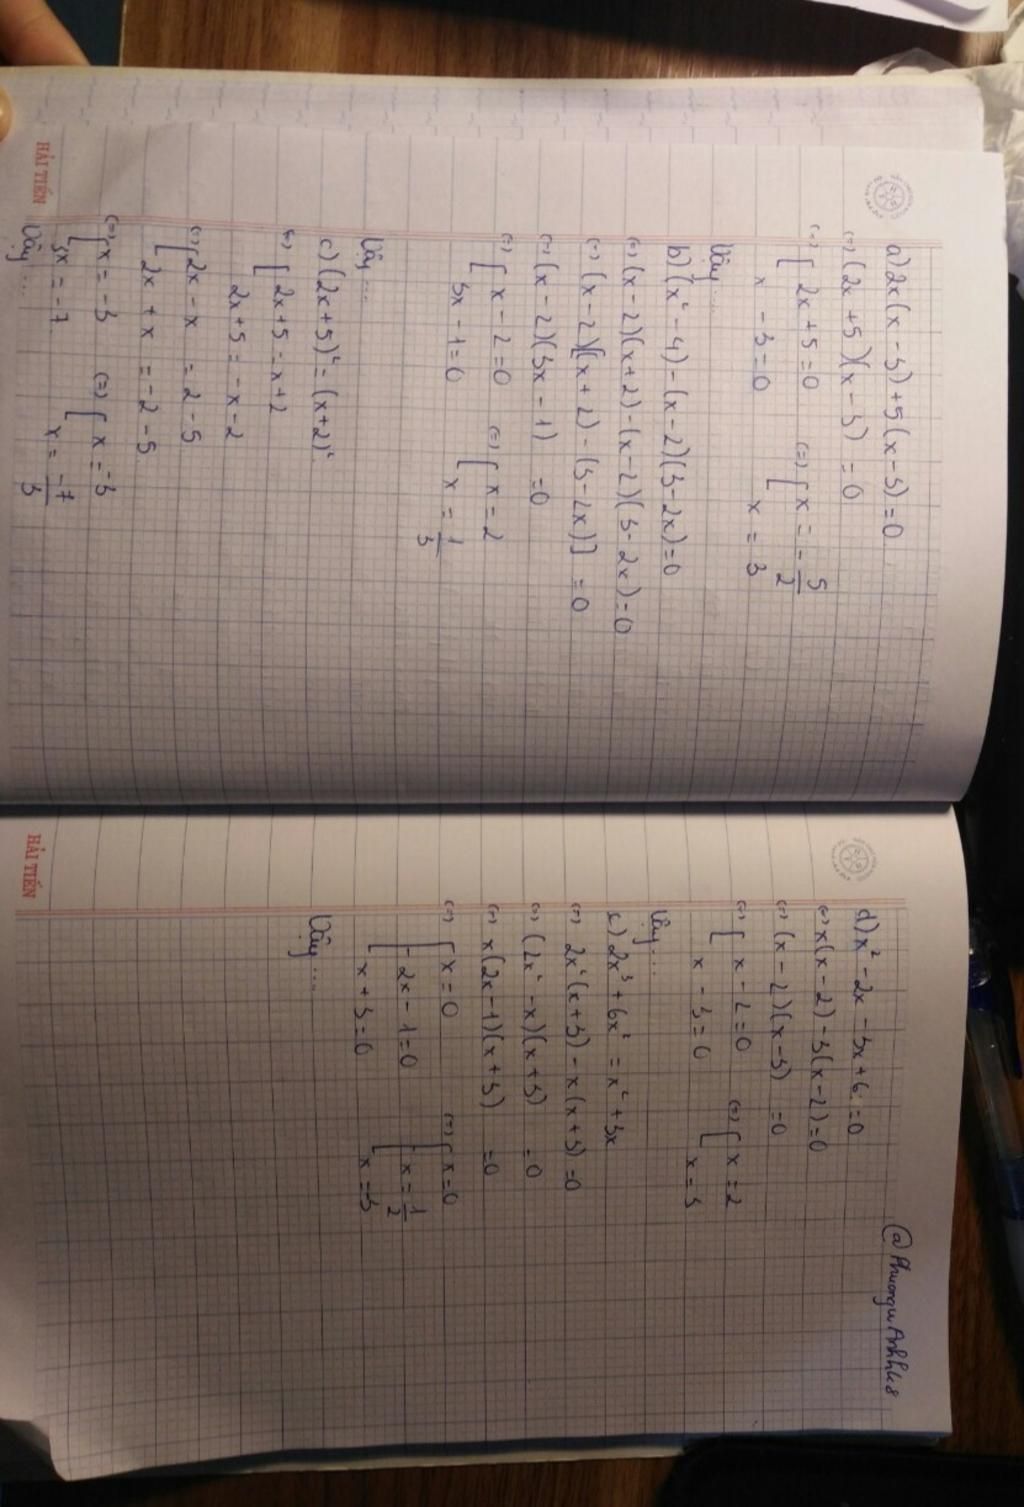 a) 2x(x-3)+5(x-3)=0
(=) (2x+5)(x-3) =0
(=) [ 2x+5=0 (=) [ x = -5/2
x - 3=0 x = 3
Vậy...
b) (x²-4)-(x-2)(3-2x)=0
(=) (x-2)(x+2)-(x-2)(3-2x)=0
(=) (x-2)[(x+2)-(3-2x)] =0
(=) (x-2)(3x-1) =0
(=) [ x-2=0 (=) [ x=2
3x-1=0 x = 1/3
Vậy...
c) (2x+5)²=(x+2)²
(=) [ 2x+5=x+2
2x+5=-x-2
(=) [ 2x-x =2-5
2x+x =-2-5
(=) [ x=-3 (=) [ x=-3
3x=-7 x=-7/3
Vậy...
HẢI TIẾN
@PhuonguAnhk8
d) x²-2x-3x+6=0
(=) x(x-2)-3(x-2)=0
(=) (x-2)(x-3) =0
(=) [ x-2=0 (=) [ x=2
x-3=0 x=3
Vậy...
c) 2x³+6x²=x²+3x
(=) 2x²(x+3)-x(x+3)=0
(=) (2x²-x)(x+3) =0
(=) x(2x-1)(x+3) =0
(=) [ x=0 (=) [ x=0
2x-1=0 x=1/2
x+3=0 x=3
Vậy...
HẢI TIẾN